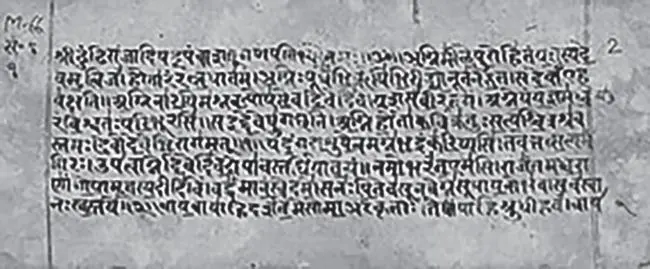 M-66
2
श्रीढुंढिराजादिषट्पंचाशद्गणपतिभ्योनमः॥ॐ॥अग्निमीळेपुरोहितंयज्ञस्यदे
वमृत्विजं।होतारंरत्नधातमं॥अग्निःपूर्वेभिर्ऋषिभिरीड्योनूतनैरुत।सदेवाँएह
वक्षति॥अग्निनारयिमश्नवत्पोषमेवदिवेदिवे।यशसंवीरवत्तमं॥अग्नेयंयज्ञमध्व
रंविश्वतःपरिभूरसि।सइद्देवेषुगच्छति॥अग्निर्होताकविक्रतुःसत्यश्चित्रश्रव
स्तमः।देवोदेवेभिरागमत्॥१॥यदंगदाशुषेत्वमग्नेभद्रंकरिष्यसि।तवेत्तत्सत्यमं
गिरः।उपत्वाग्नेदिवेदिवेदोषावस्तर्धियावयं॥नमोभरंतएमसि॥राजंतमध्वरा
णांगोपामृतस्यदीदिविं।वर्द्धमानंस्वेदमे॥सनःपितेवसूनवेग्नेसूपायनोभव॥सचस्वा
नःस्वस्तये॥२॥वायवायाहिदर्शतेमेसोमाअरंकृताः।तेषांपाहिश्रुधीहवं॥वाय